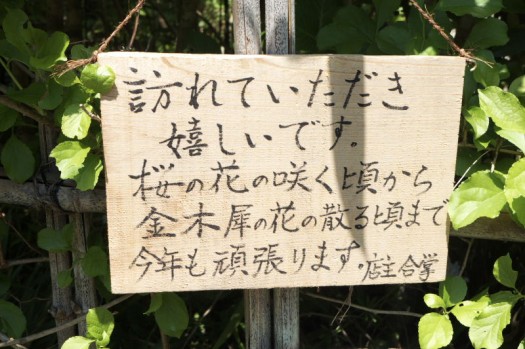 訪れていただき
嬉しいです。
桜の花の咲く頃から
金木犀の花の散る頃まで
今年も頑張ります。店主合掌